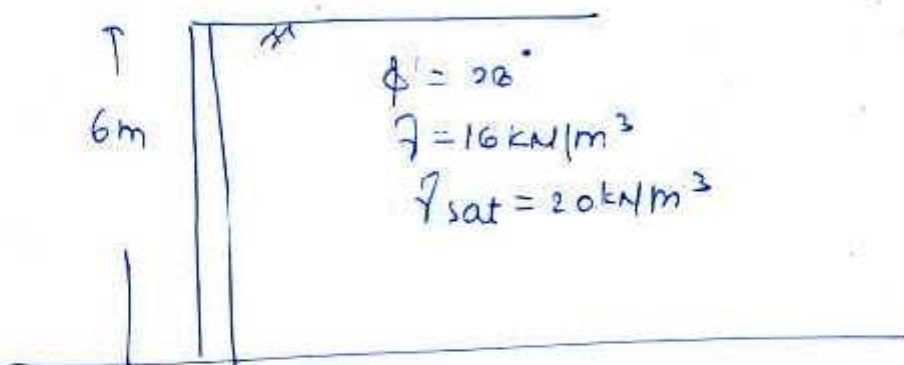 6m
ϕ' = 28°
γ = 16 kN/m³
γsat = 20 kN/m³